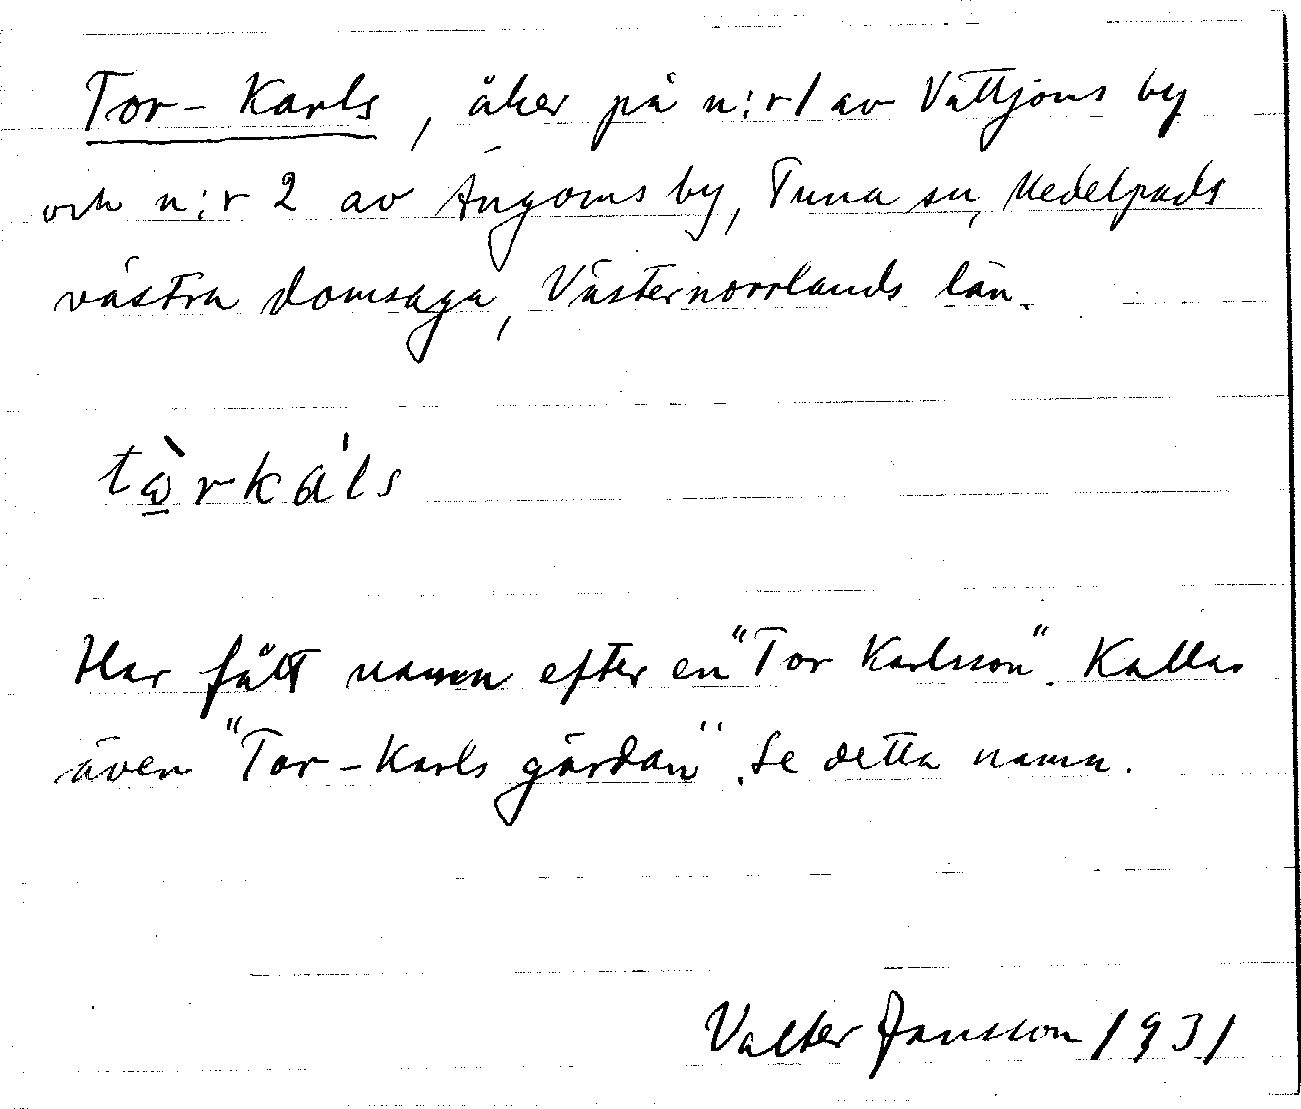 Tor-Karls, åker på n:r 1 av Vattjoms by
och n:r 2 av Ängoms by, Tuna sn, Medelpads
västra domsaga, Västernorrlands län.
tὼ̲rka'ls
Har fått namn efter en "Tor Karlsson". Kallas
även "Tor-Karls gärdan". Se detta namn.
Valter Jansson 1931